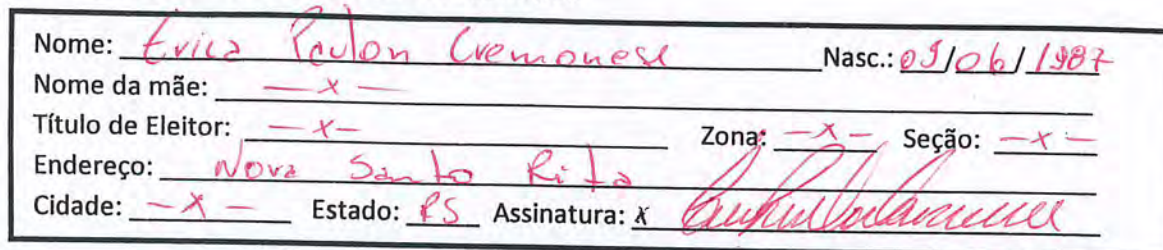 Nome: Erica Paulon Cremonese Nasc.: 09/06/1987
Nome da mãe: —x—
Título de Eleitor: —x— Zona: —x— Seção: —x—
Endereço: Nova Santo Rita
Cidade: —x— Estado: RS Assinatura: x